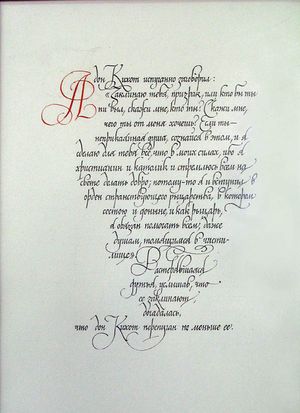 А дон Кихот испуганно заговорил:
"Заклинаю тебя, призрак, или кто бы ты
ни был, скажи мне, кто ты? Скажи мне,
чего ты от меня хочешь? Если ты–
неприкаянная душа, сознайся в этом, и я
сделаю для тебя всё, что в моих силах, ибо я
христианин и католик и стремлюсь всем на
свете делать добро; потому-то я и вступил в
орден странствующего рыцарства, в котором
состою и доныне, и как рыцарь,
я обязан помогать всем, даже
душам, томящимся в чисти-
лище"
Растерявшаяся
дуэнья, услышав, что
её заклинают
догадалась,
что дон Кихот перепуган не меньше её.